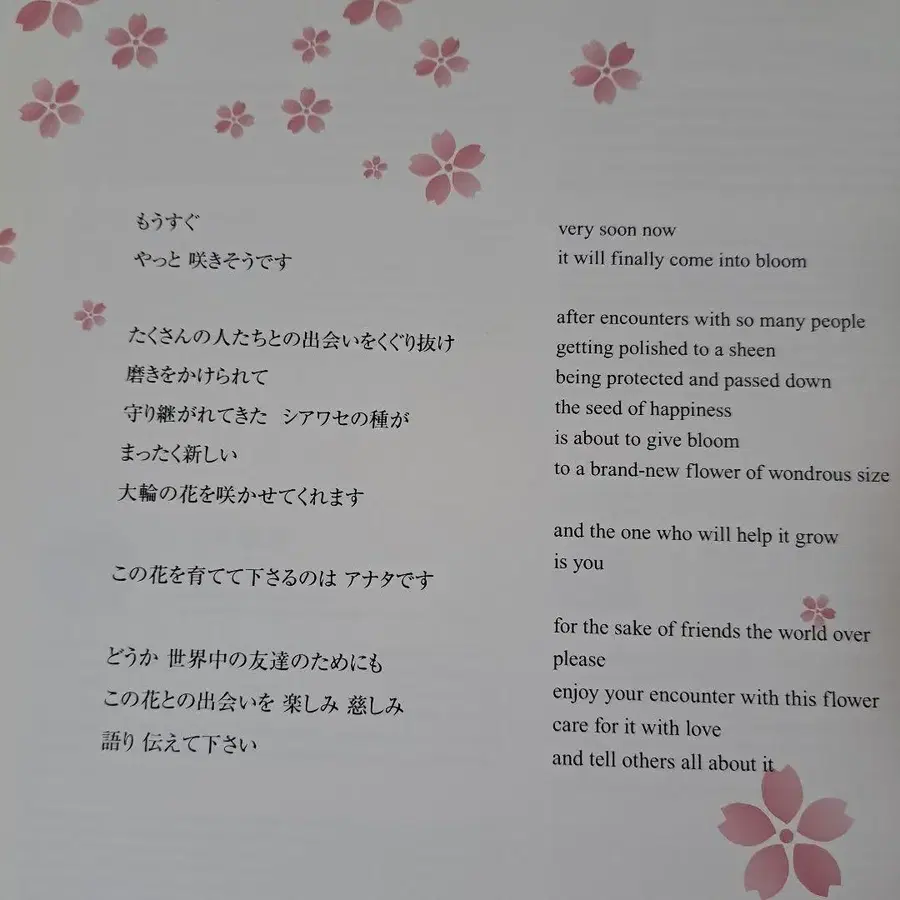 もうすぐ
やっと 咲きそうです
たくさんの人たちとの出会いをくぐり抜け
磨きをかけられて
守り継がれてきた シアワセの種が
まったく新しい
大輪の花を咲かせてくれます
この花を育てて下さるのは アナタです
どうか 世界中の友達のためにも
この花との出会いを 楽しみ 慈しみ
語り 伝えて下さい
very soon now
it will finally come into bloom
after encounters with so many people
getting polished to a sheen
being protected and passed down
the seed of happiness
is about to give bloom
to a brand-new flower of wondrous size
and the one who will help it grow
is you
for the sake of friends the world over
please
enjoy your encounter with this flower
care for it with love
and tell others all about it